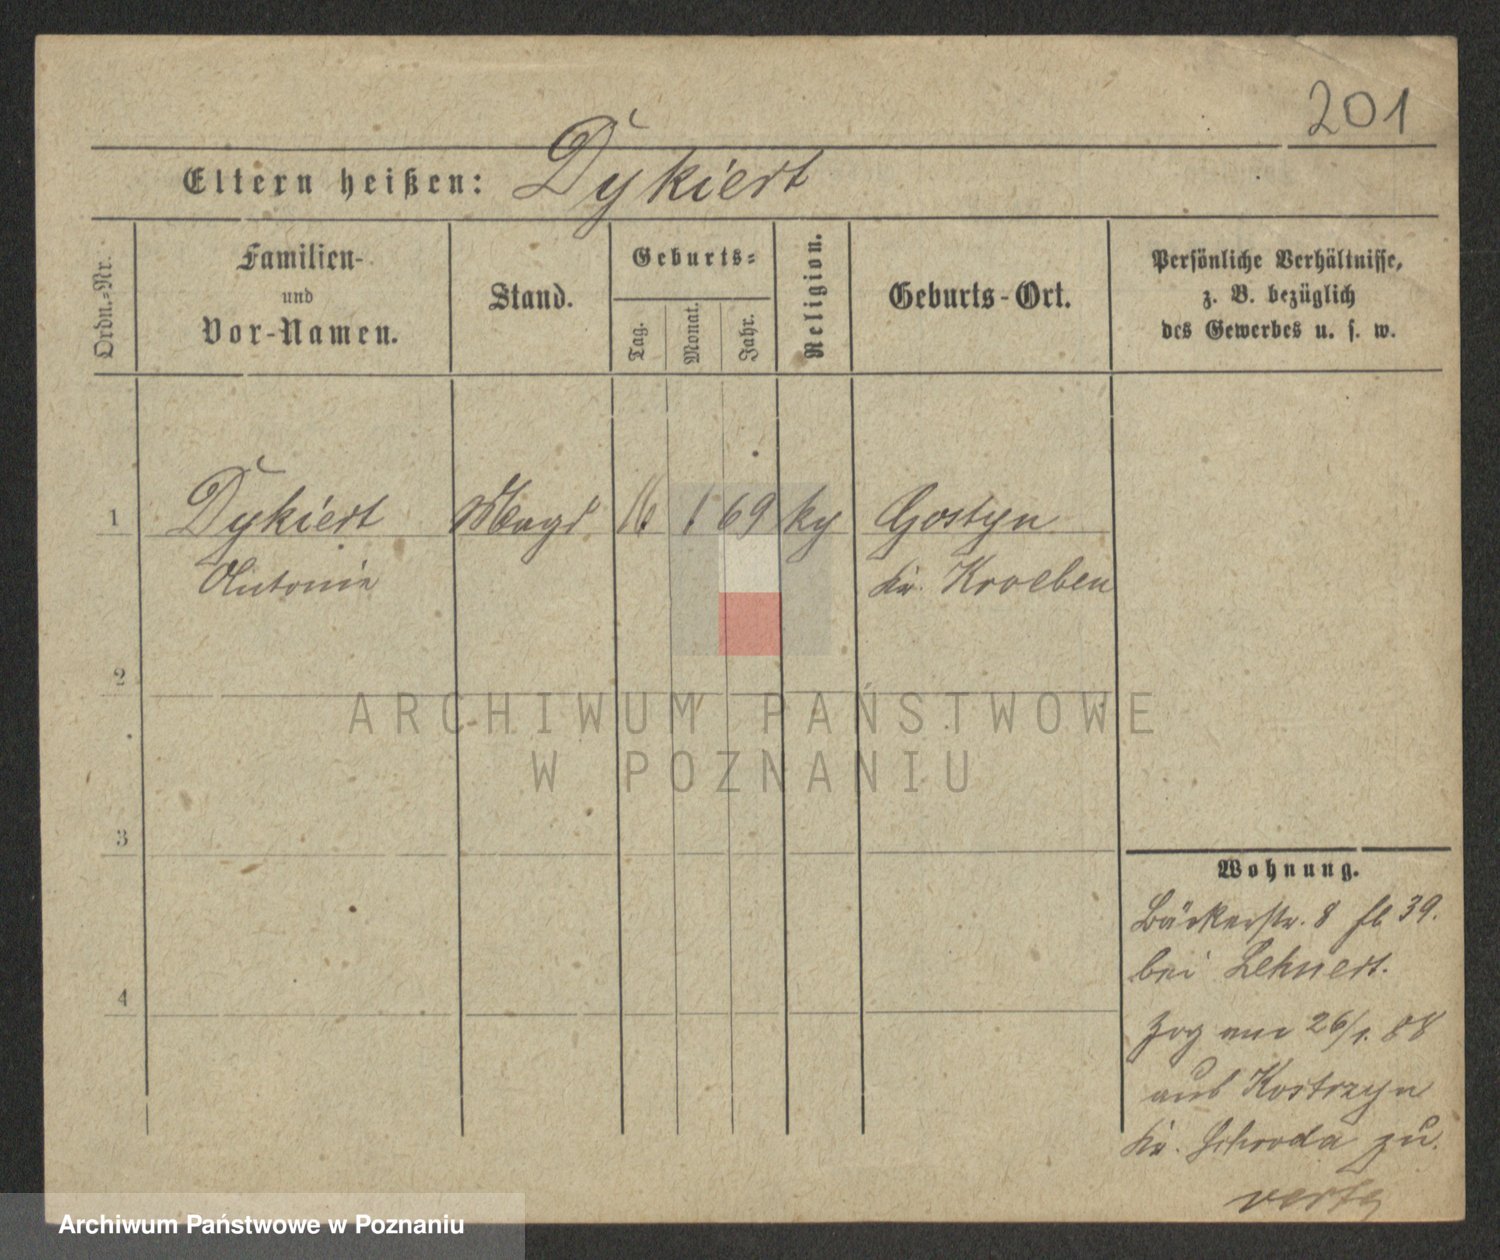 201
Eltern heißen: Dykiert
Ordn.-Nr.
Familien-
und
Vor-Namen.
Stand.
Geburts-
Tag.
Monat.
Jahr.
Religion.
Geburts-Ort.
Persönliche Verhältnisse,
z. B. bezüglich
des Gewerbes u. s. w.
1 Dykiert Magd 16. 1 69 ky Gostyn
Antonie Kr. Kroeben
2
3
4
Wohnung.
Bäckerstr. 8 39.
bei Lehnert.
Zog am 26/1. 88
aus Kostrzyn
Kr. Schroda zu.
verte
ARCHIWUM PAŃSTWOWE
W POZNANIU
Archiwum Państwowe w Poznaniu